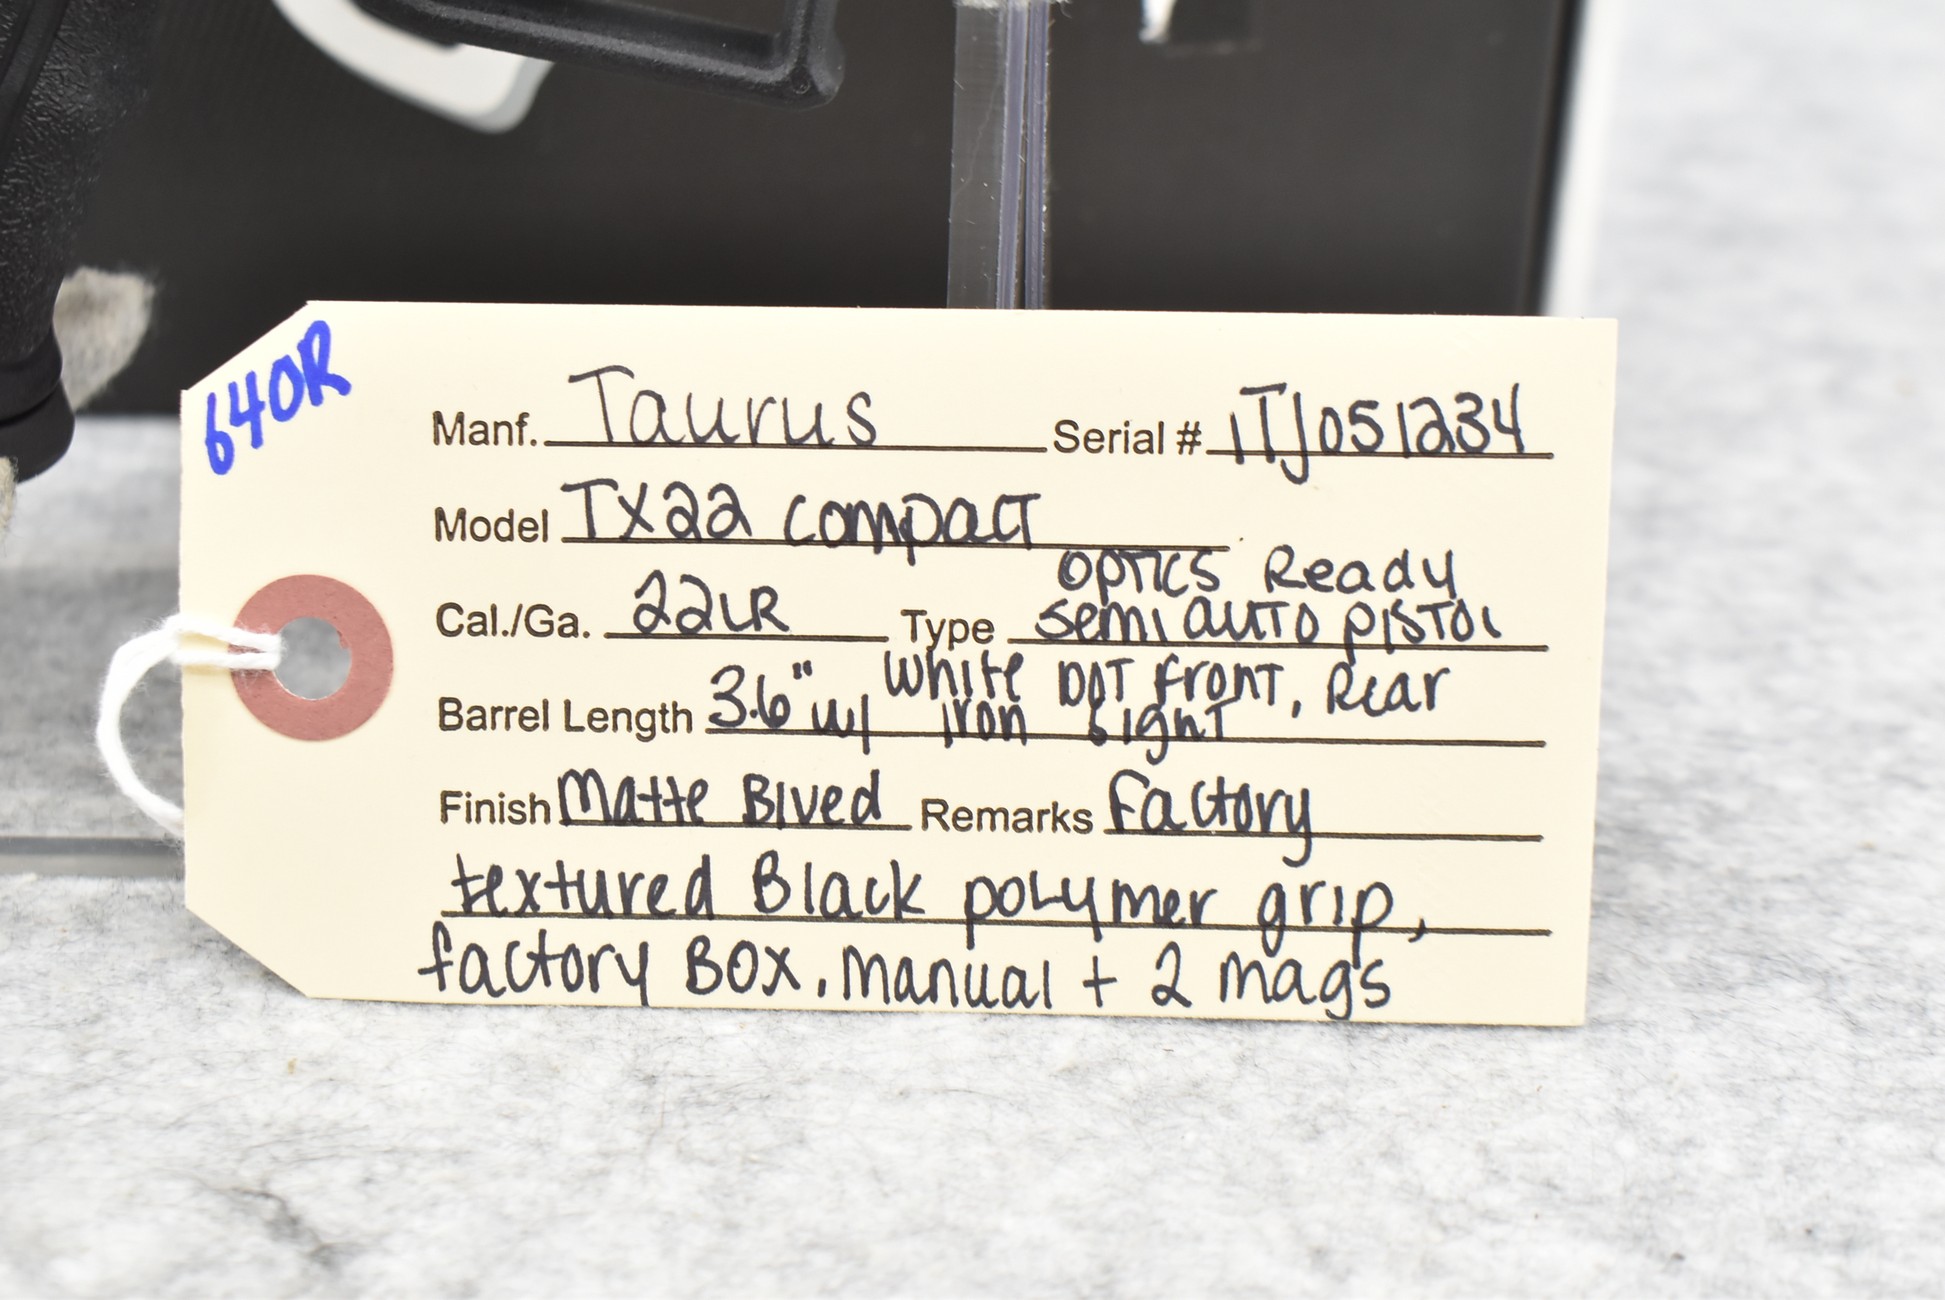 640R
Manf. Taurus Serial # 1TJ051234
Model TX22 compact
OPTICS Ready
Cal./Ga. 22LR Type semi auto pistol
White DOT Front, Rear
Barrel Length 3.6" w/ iron sight
Finish Matte Blued Remarks Factory
textured Black polymer grip,
factory BOX, manual + 2 mags